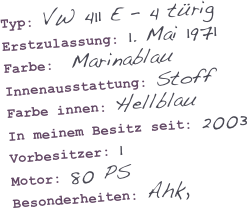 Typ: VW 411 E - 4 türig
Erstzulassung: 1. Mai 1971
Farbe: Marinablau
Innenausstattung: Stoff
Farbe innen: Hellblau
In meinem Besitz seit: 2003
Vorbesitzer: 1
Motor: 80 PS
Besonderheiten: Ahk,